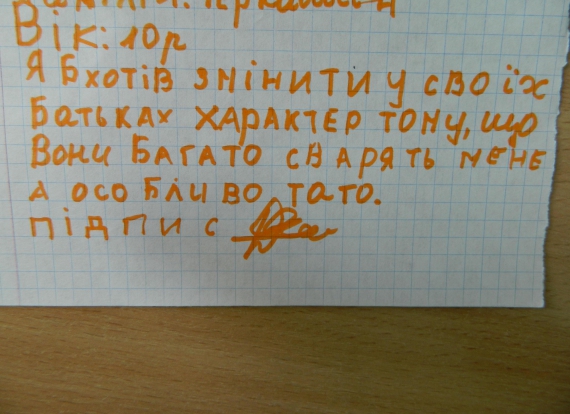 Вік: 10р
Я б хотів змінити у своїх
батьках характер тому, що
вони багато сварять мене
а особливо тато.
підпис